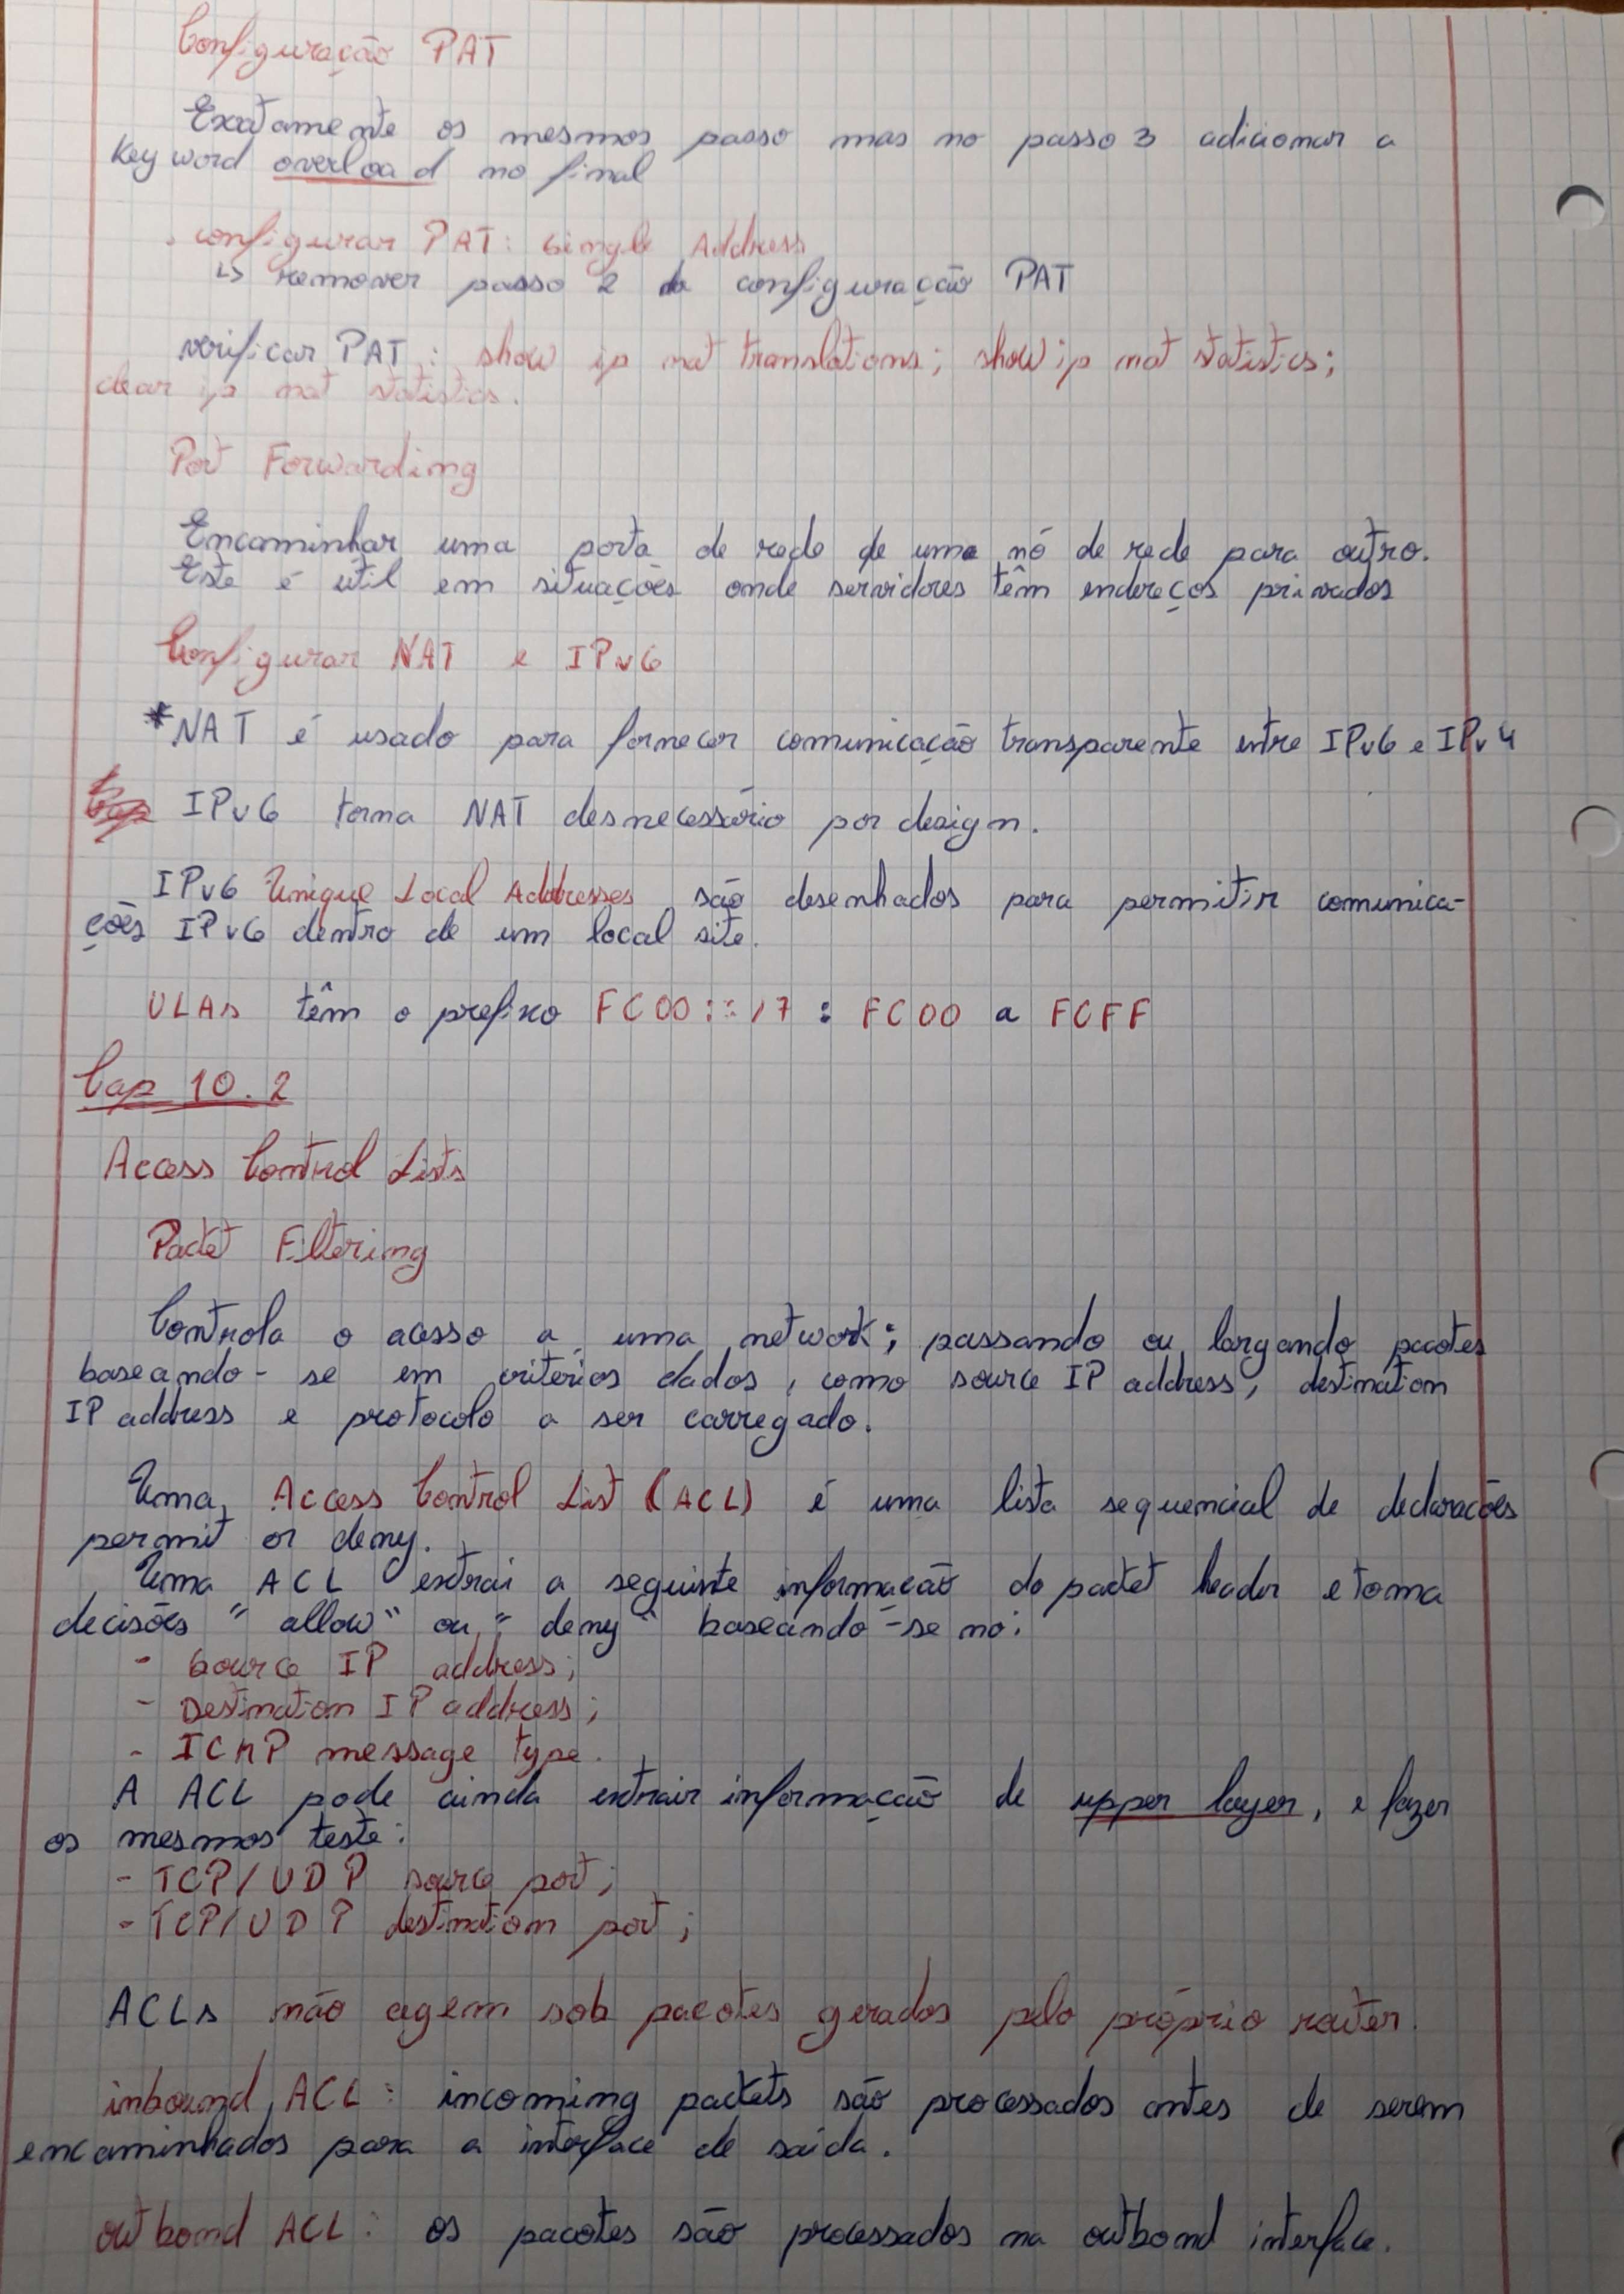 Configuração PAT
Exatamente os mesmos passo mas no passo 3 adicionar a
Keyword overload no final
. configurar PAT: Single Address
↳ remover passo 2 da configuração PAT
verificar PAT : show ip nat translations; show ip nat statistics;
clear ip nat statistics.
Port Forwarding
Encaminhar uma porta de rede de uma nó de rede para outro.
Este é útil em situações onde servidores têm endereços privados
Configurar NAT e IPv6
*NAT é usado para fornecer comunicação transparente entre IPv6 e IPv4
IPv6 torna NAT desnecessário por design.
IPv6 Unique Local Addresses são desenhados para permitir comunica-
ções IPv6 dentro de um local site.
ULAs têm o prefixo FC00::/7 : FC00 a FCFF
Cap 10.2
Access Control Lists
Packet Filtering
Controla o acesso a uma network; passando ou largando pacotes
baseando-se em critérios dados, como source IP address, destination
IP address e protocolo a ser carregado.
Uma Access Control List (ACL) é uma lista sequencial de declarações
permit or deny.
Uma ACL extrai a seguinte informação do packet header e toma
decisões "allow" ou "deny" baseando-se no:
- Source IP address;
- Destination IP address;
- ICMP message type.
A ACL pode ainda extrair informação de upper layer, e fazer
os mesmos teste:
- TCP/UDP source port;
- TCP/UDP destination port;
ACLs não agem sob pacotes gerados pelo próprio router.
inbound ACL: incoming packets são processados antes de serem
encaminhados para a interface de saída.
outbond ACL: os pacotes são processados na outbond interface.